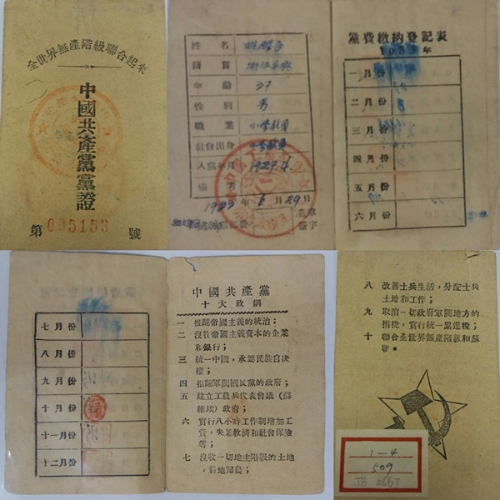 全世界無產階級聯合起來
中國共產黨黨證
第 095153 號
姓名
籍貫
年齡 27
性別 男
職業 小學教員
社會出身
入黨年月
備考
黨費繳納登記表
一月份
二月份
三月份
四月份
五月份
六月份
七月份
八月份
九月份
十月份
十一月份
十二月份
中國共產黨
十大政綱
一 推翻帝國主義的統治；
二 沒收帝國主義資本的企業
和銀行；
三 統一中國，承認民族自決
權；
四 推翻軍閥國民黨的政府；
五 建立工農兵代表會議（蘇
維埃）政府；
六 實行八小時工作制增加工
資，失業救濟和社會保險
等；
七 沒收一切地主階級的土地
，耕地歸農；
八 改善士兵生活，分配士兵
土地和工作；
九 取消一切政府軍閥地方的
捐稅，實行統一累進稅；
十 聯合全世界無產階級和蘇
聯。
1-4
509
JB 2667